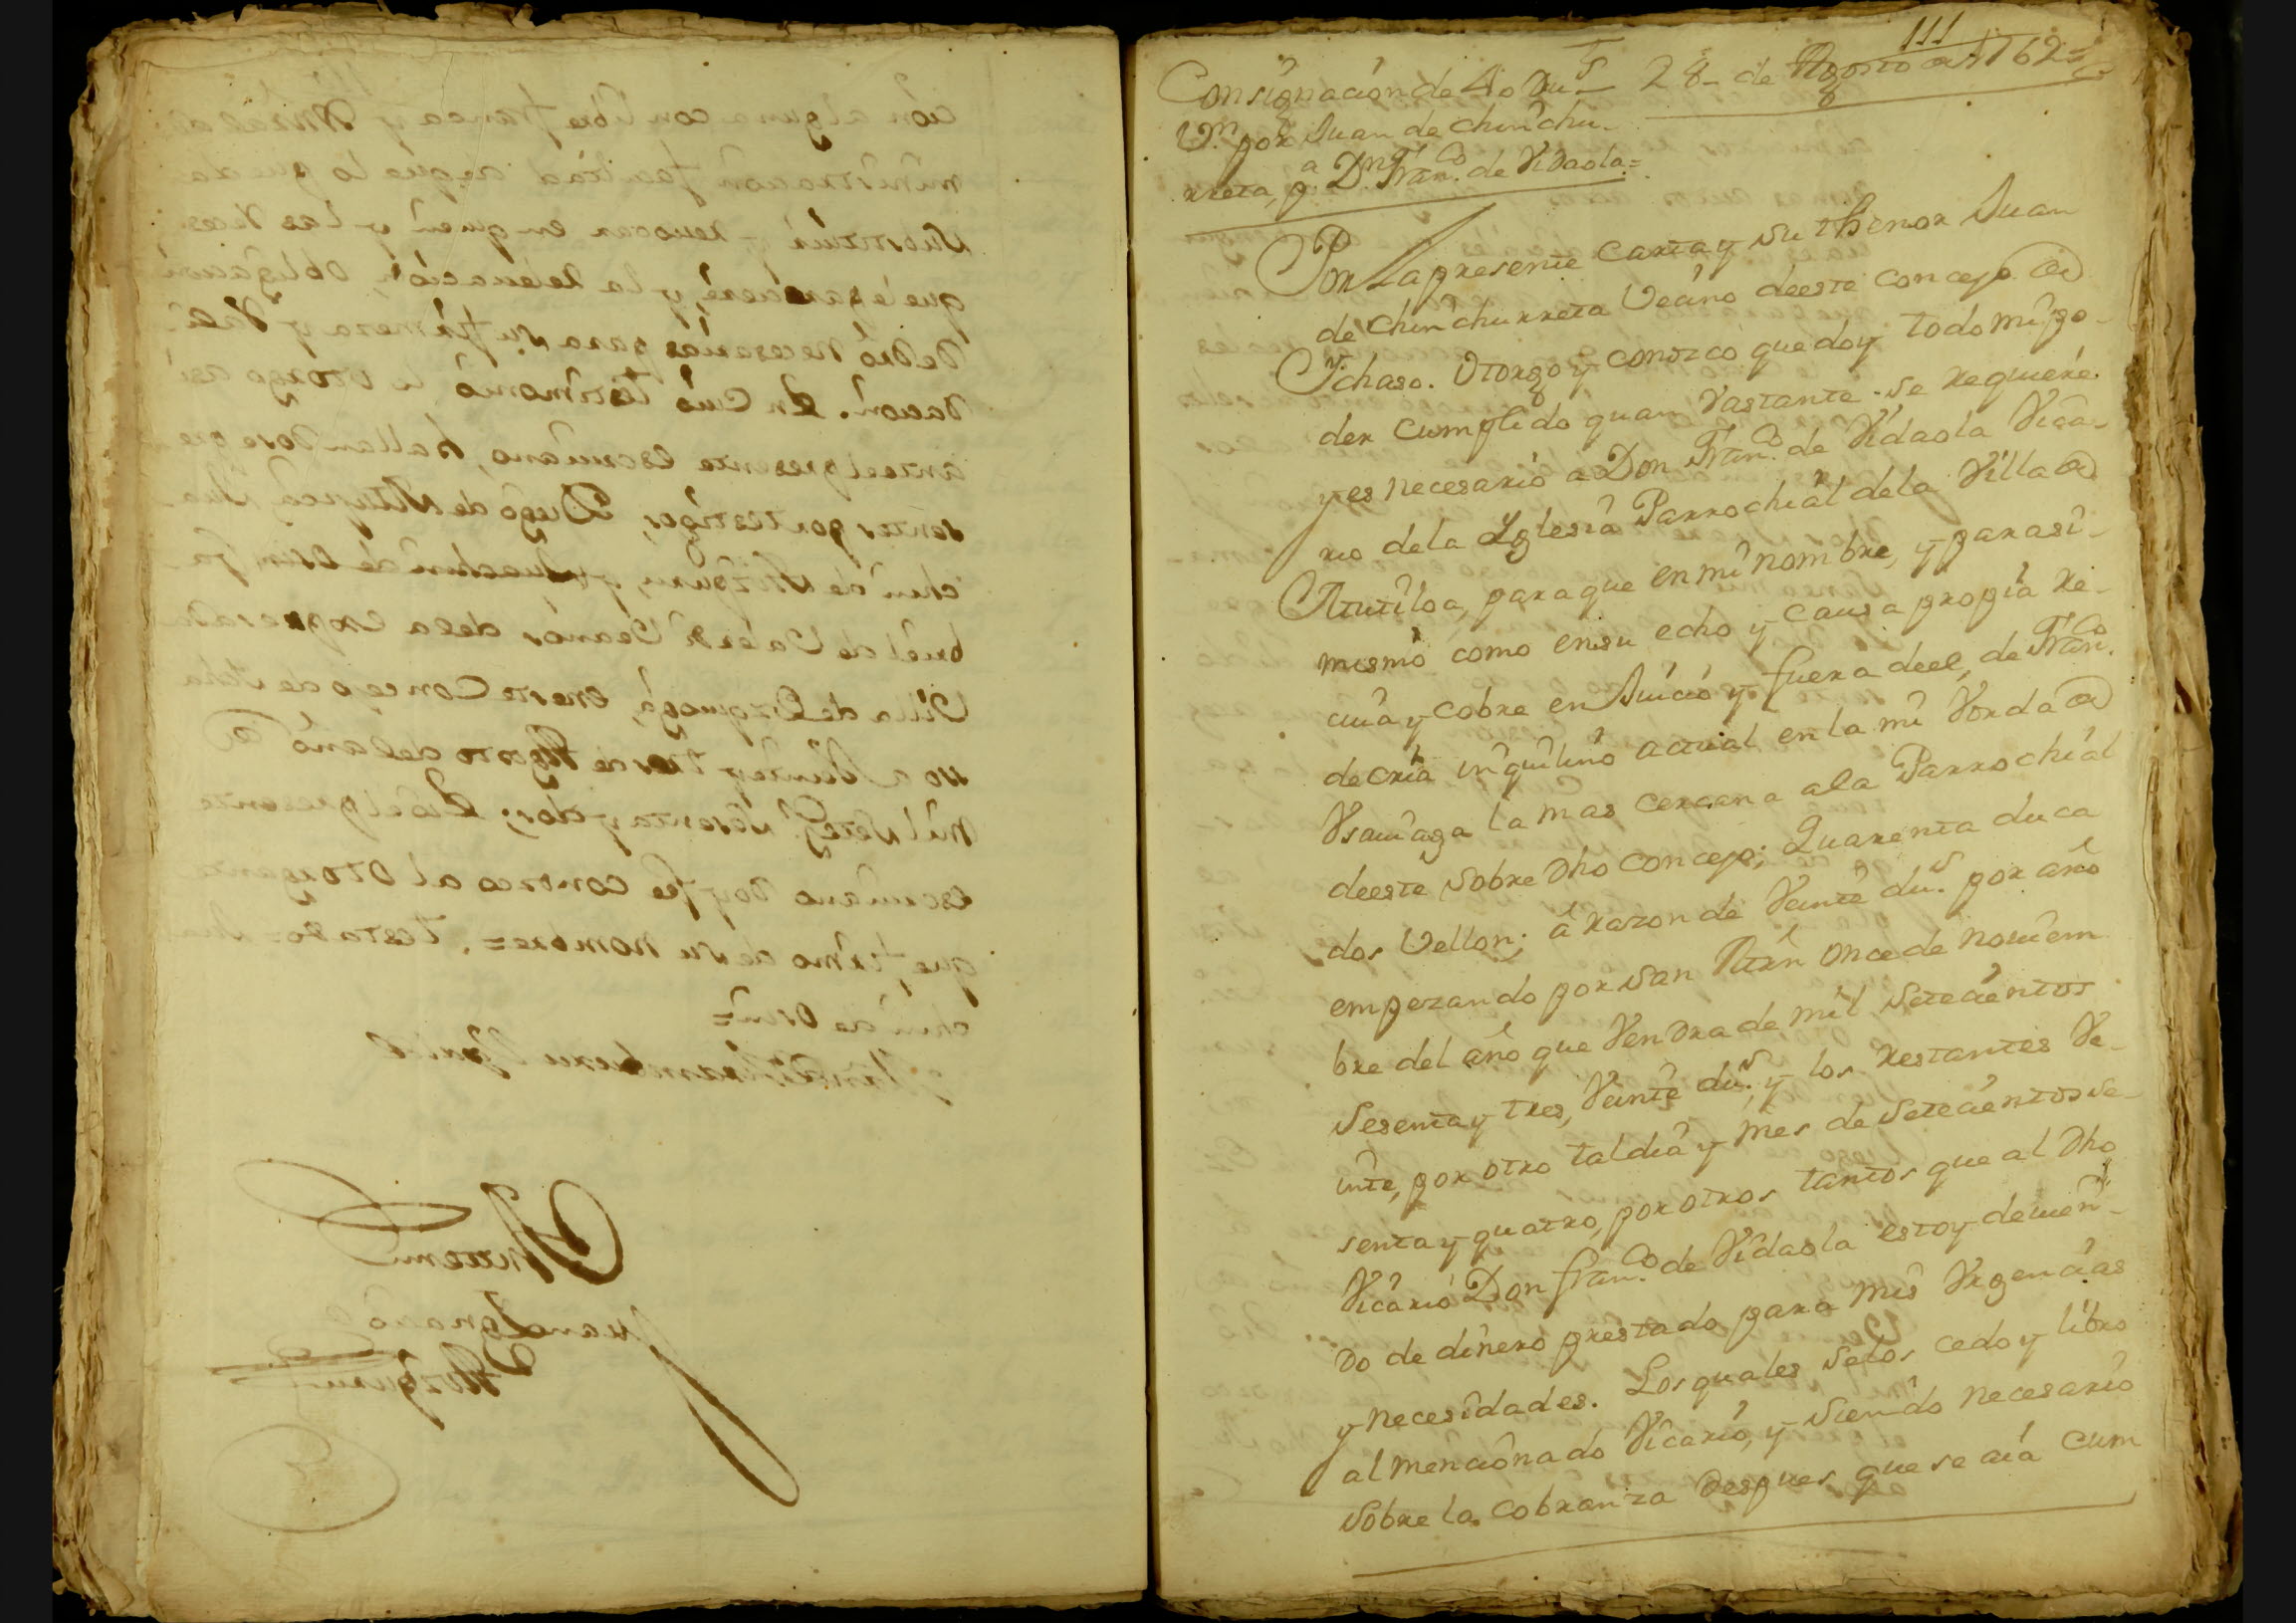 cion alguna con libre franca y Xneral ad
ministracion facultad a que lo pueda
Substituir y revocar en quien y las veces
que le pareciere, y la relevacion, obligacion
Poderio necesarios para su firmeza y vali
dacion. En cuio testimonio lo otorgo asi
ante el presente escrivano, hallandose pre
sentes por testigos, Diego de Mugica, Jua
chin de Aizpuru, y Juachin de Osin, Ga
briel de Vecinos de esa expresada
Villa de Ezquioga, en este Concejo de Ycha
so a Veinte y tres de Agosto del año de
mil setez.s sesenta y dos; Yo el presente
escrivano doy fee conozco al otorgante
que firmo de su nombre=. testado= Jua
chin de Osin=
Ante mi
Juan Ygnacio
Aizpuru
111
Consignacion de 40 Du.s 28 de Agosto de 1762
V.n por Juan de Chinchu-
rreta, p.a Dn Fran.co de Vidaola=
Por La presente carta y su thenor Juan
de Chinchurreta Vecino de este concejo de
Ychaso. Otorgo y conozco que doy todo mi po-
der cumplido quan vastante se requiere
y es necesario a Don Fran.co de Vidaola Vica-
rio de la Yglesia Parrochial de la Villa de
Mutiloa, para que en mi nombre, y para si
mismo como en su echo y causa propia re-
civa y cobre en Juicio y fuera de el, de Fran.co
de Oria inquilino actual en la mi Borda de
Ysamaga la mas cercana a la Parrochial
de este sobre dho concejo; Quarenta duca
dos Vellon; â razon de Veinte du.s por año
empezando por San Mrn once de Noviem
bre del año que Vendra de mil Setecientos
Sesenta y tres, Veinte du.s, y los restantes Ve-
inte, por otro tal dia y mes de Setecientos se-
senta y quatro, por otros tantos que al Dho
Vicario Don fran.co de Vidaola estoy devien-
do de dinero prestado para mis Vrgencias
y necesidades. Los quales selos cedo y libro
al mencionado Vicario, y siendo necesario
Sobre la cobranza despues que se aia cum